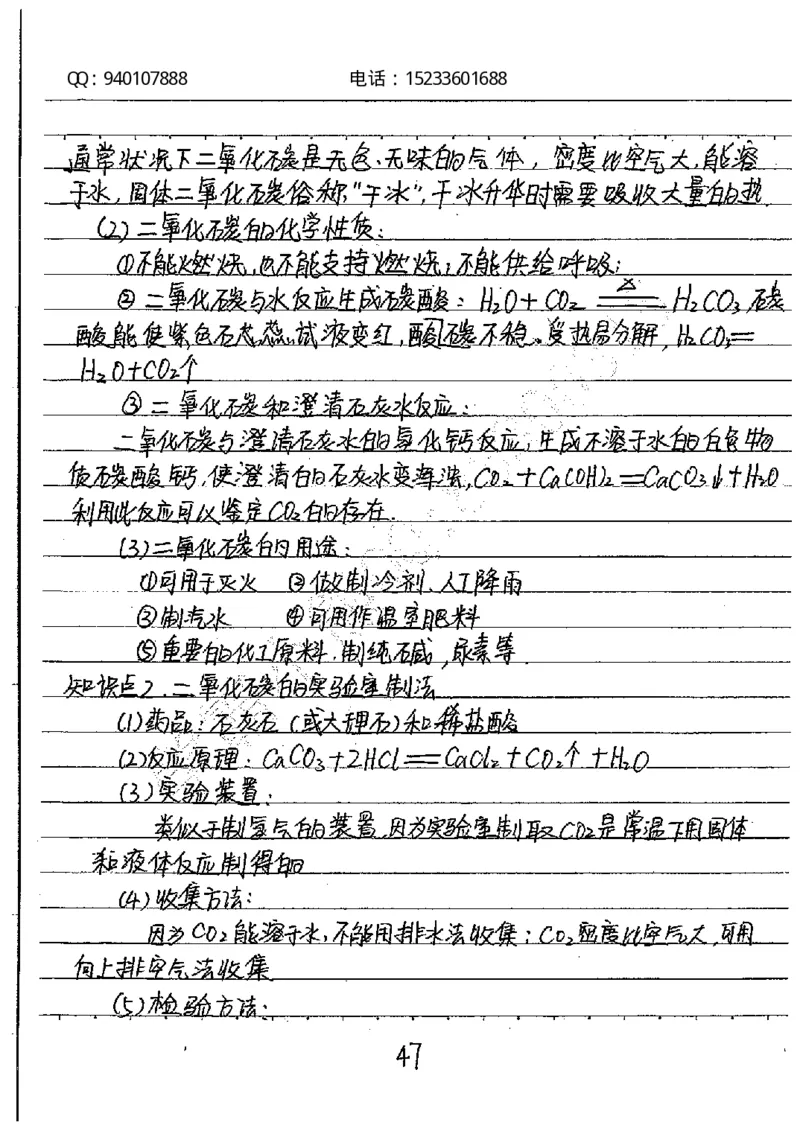 QQ：940107888 电话：15233601688
通常状况下二氧化碳是无色、无味的气体，密度比空气大，能溶
于水，固体二氧化碳俗称"干冰"，干冰升华时需要吸收大量的热.
(2)二氧化碳的化学性质：
①不能燃烧，也不能支持燃烧；不能供给呼吸；
②二氧化碳与水反应生成碳酸：H₂O+CO₂ ==△== H₂CO₃，碳
酸能使紫色石蕊试液变红，酸碳不稳。受热易分解，H₂CO₃==
H₂O+CO₂↑
③二氧化碳和澄清石灰水反应：
二氧化碳与澄清石灰水的氢化钙反应，生成不溶于水的白色物
质碳酸钙，使澄清的石灰水变浑浊，CO₂+Ca(OH)₂==CaCO₃↓+H₂O
利用此反应可以鉴定CO₂的存在.
(3)二氧化碳的用途：
①可用于灭火 ②做制冷剂、人工降雨
③制汽水 ④可用作温室肥料
⑤重要的化工原料.制纯碱，尿素等
知识点2.二氧化碳的实验室制法
(1)药品：石灰石（或大理石）和稀盐酸
(2)反应原理：CaCO₃+2HCl==CaCl₂+CO₂↑+H₂O
(3)实验装置：
类似于制氢气的装置，因为实验室制取CO₂是常温下用固体
和液体反应制得的
(4)收集方法：
因为CO₂能溶于水，不能用排水法收集；CO₂密度比空气大，可用
向上排空气法收集
(5)检验方法：
47